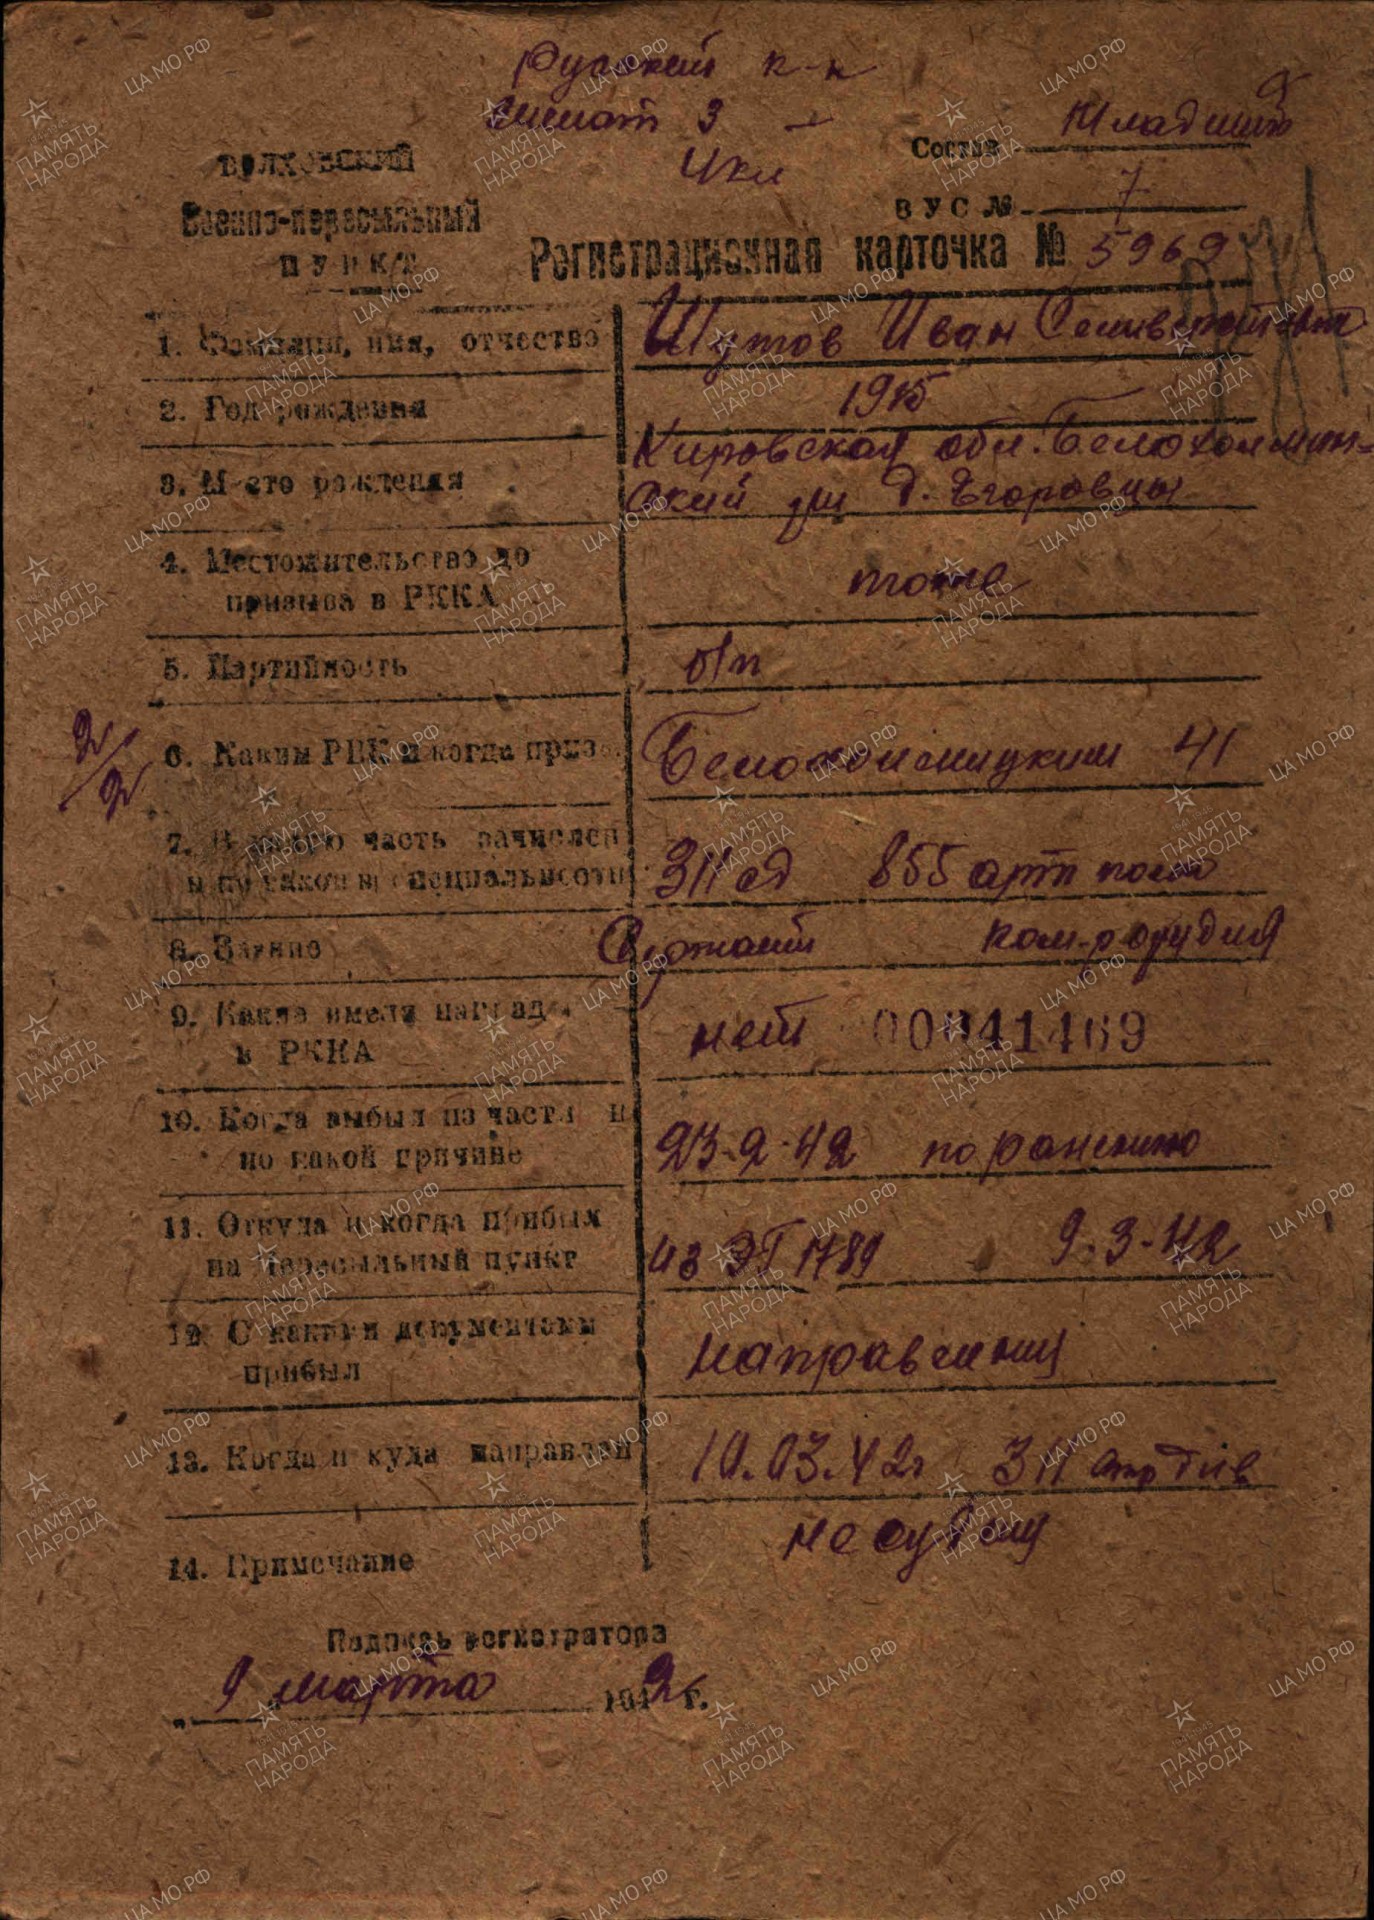 Русский к-н
женат 3 —
4 кл
Состав Младший
ВУС № 7
ВОЛХОВСКИЙ
Военно-пересыльный
ПУНКТ
Регистрационная карточка № 5969
1. Фамилия, имя, отчество Шутов Иван
2. Год рождения 1915
3. Место рождения Кировская обл. Белохолмин-
ский д. Егоровцы
4. Местожительство до
призыва в РККА тоже
5. Партийность б/п
2/2
6. Каким РВК и когда призв. 41
7. В какую часть зачислен
и по какой специальности 311 сд 855 арт полк
8. Звание Сержант ком-р орудия
9. Какие имел наград
в РККА нет 00041469
10. Когда выбыл из части и
по какой причине 23-2-42 по ранению
11. Откуда и когда прибыл
на пересыльный пункт из ЭГ 1789 9.3-42
12. С какими документами
прибыл направления
13. Когда и куда направлен 10.03.42г 311 стр див
14. Примечание
Подпись регистратора
9 марта 1942 г.